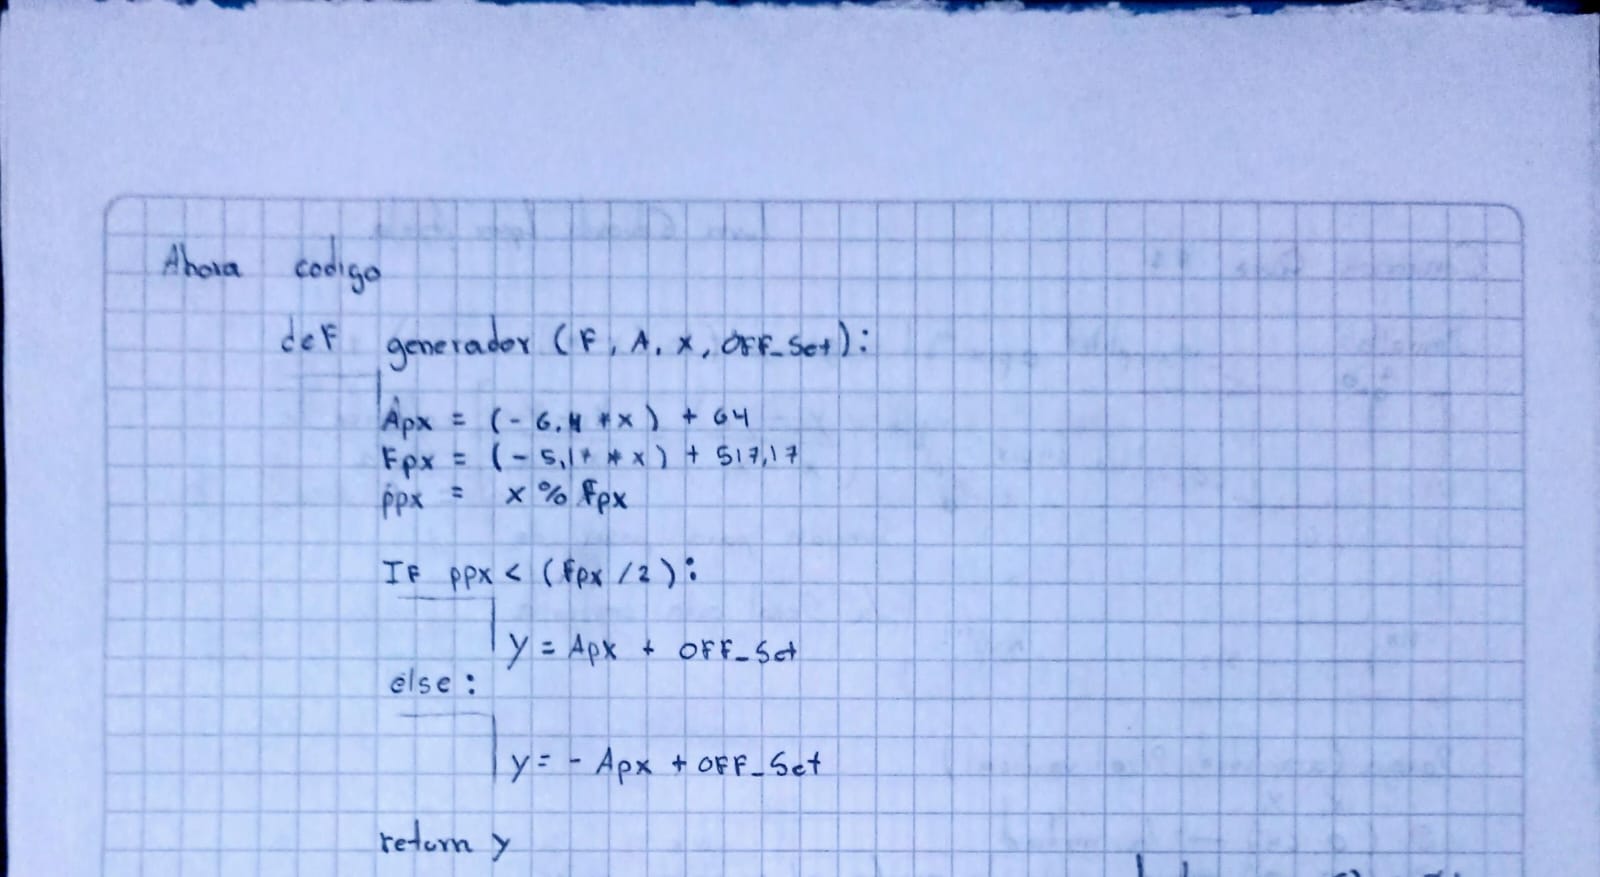 Ahora codigo
def generador (F, A, x, OFF_Set):
Apx = (- 6.4 * x) + 64
Fpx = (- 5,17 * x) + 517,17
ppx = x % Fpx
IF ppx < (Fpx / 2):
y = Apx + OFF_Set
else:
y = - Apx + OFF_Set
return y